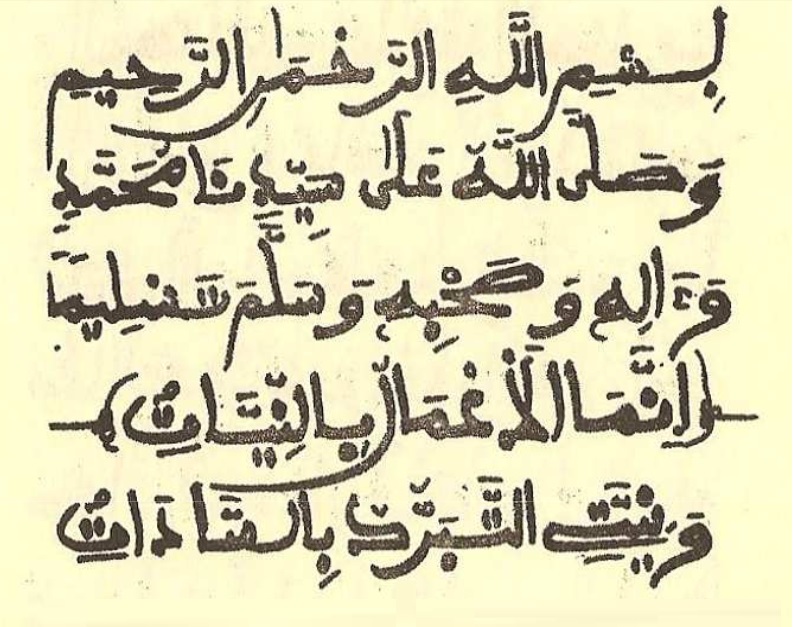 بِسْمِ اللَّهِ الرَّحْمَٰنِ الرَّحِيمِ
وَصَلَّى اللَّهُ عَلَى سَيِّدِنَا مُحَمَّدٍ
وَءَالِهِ وَصَحْبِهِ وَسَلَّمَ تَسْلِيمًا
(إِنَّمَا الأَعْمَالُ بِالنِّيَّاتِ)
وَنِيَّتِي التَّبَرُّكُ بِالسَّادَاتِ